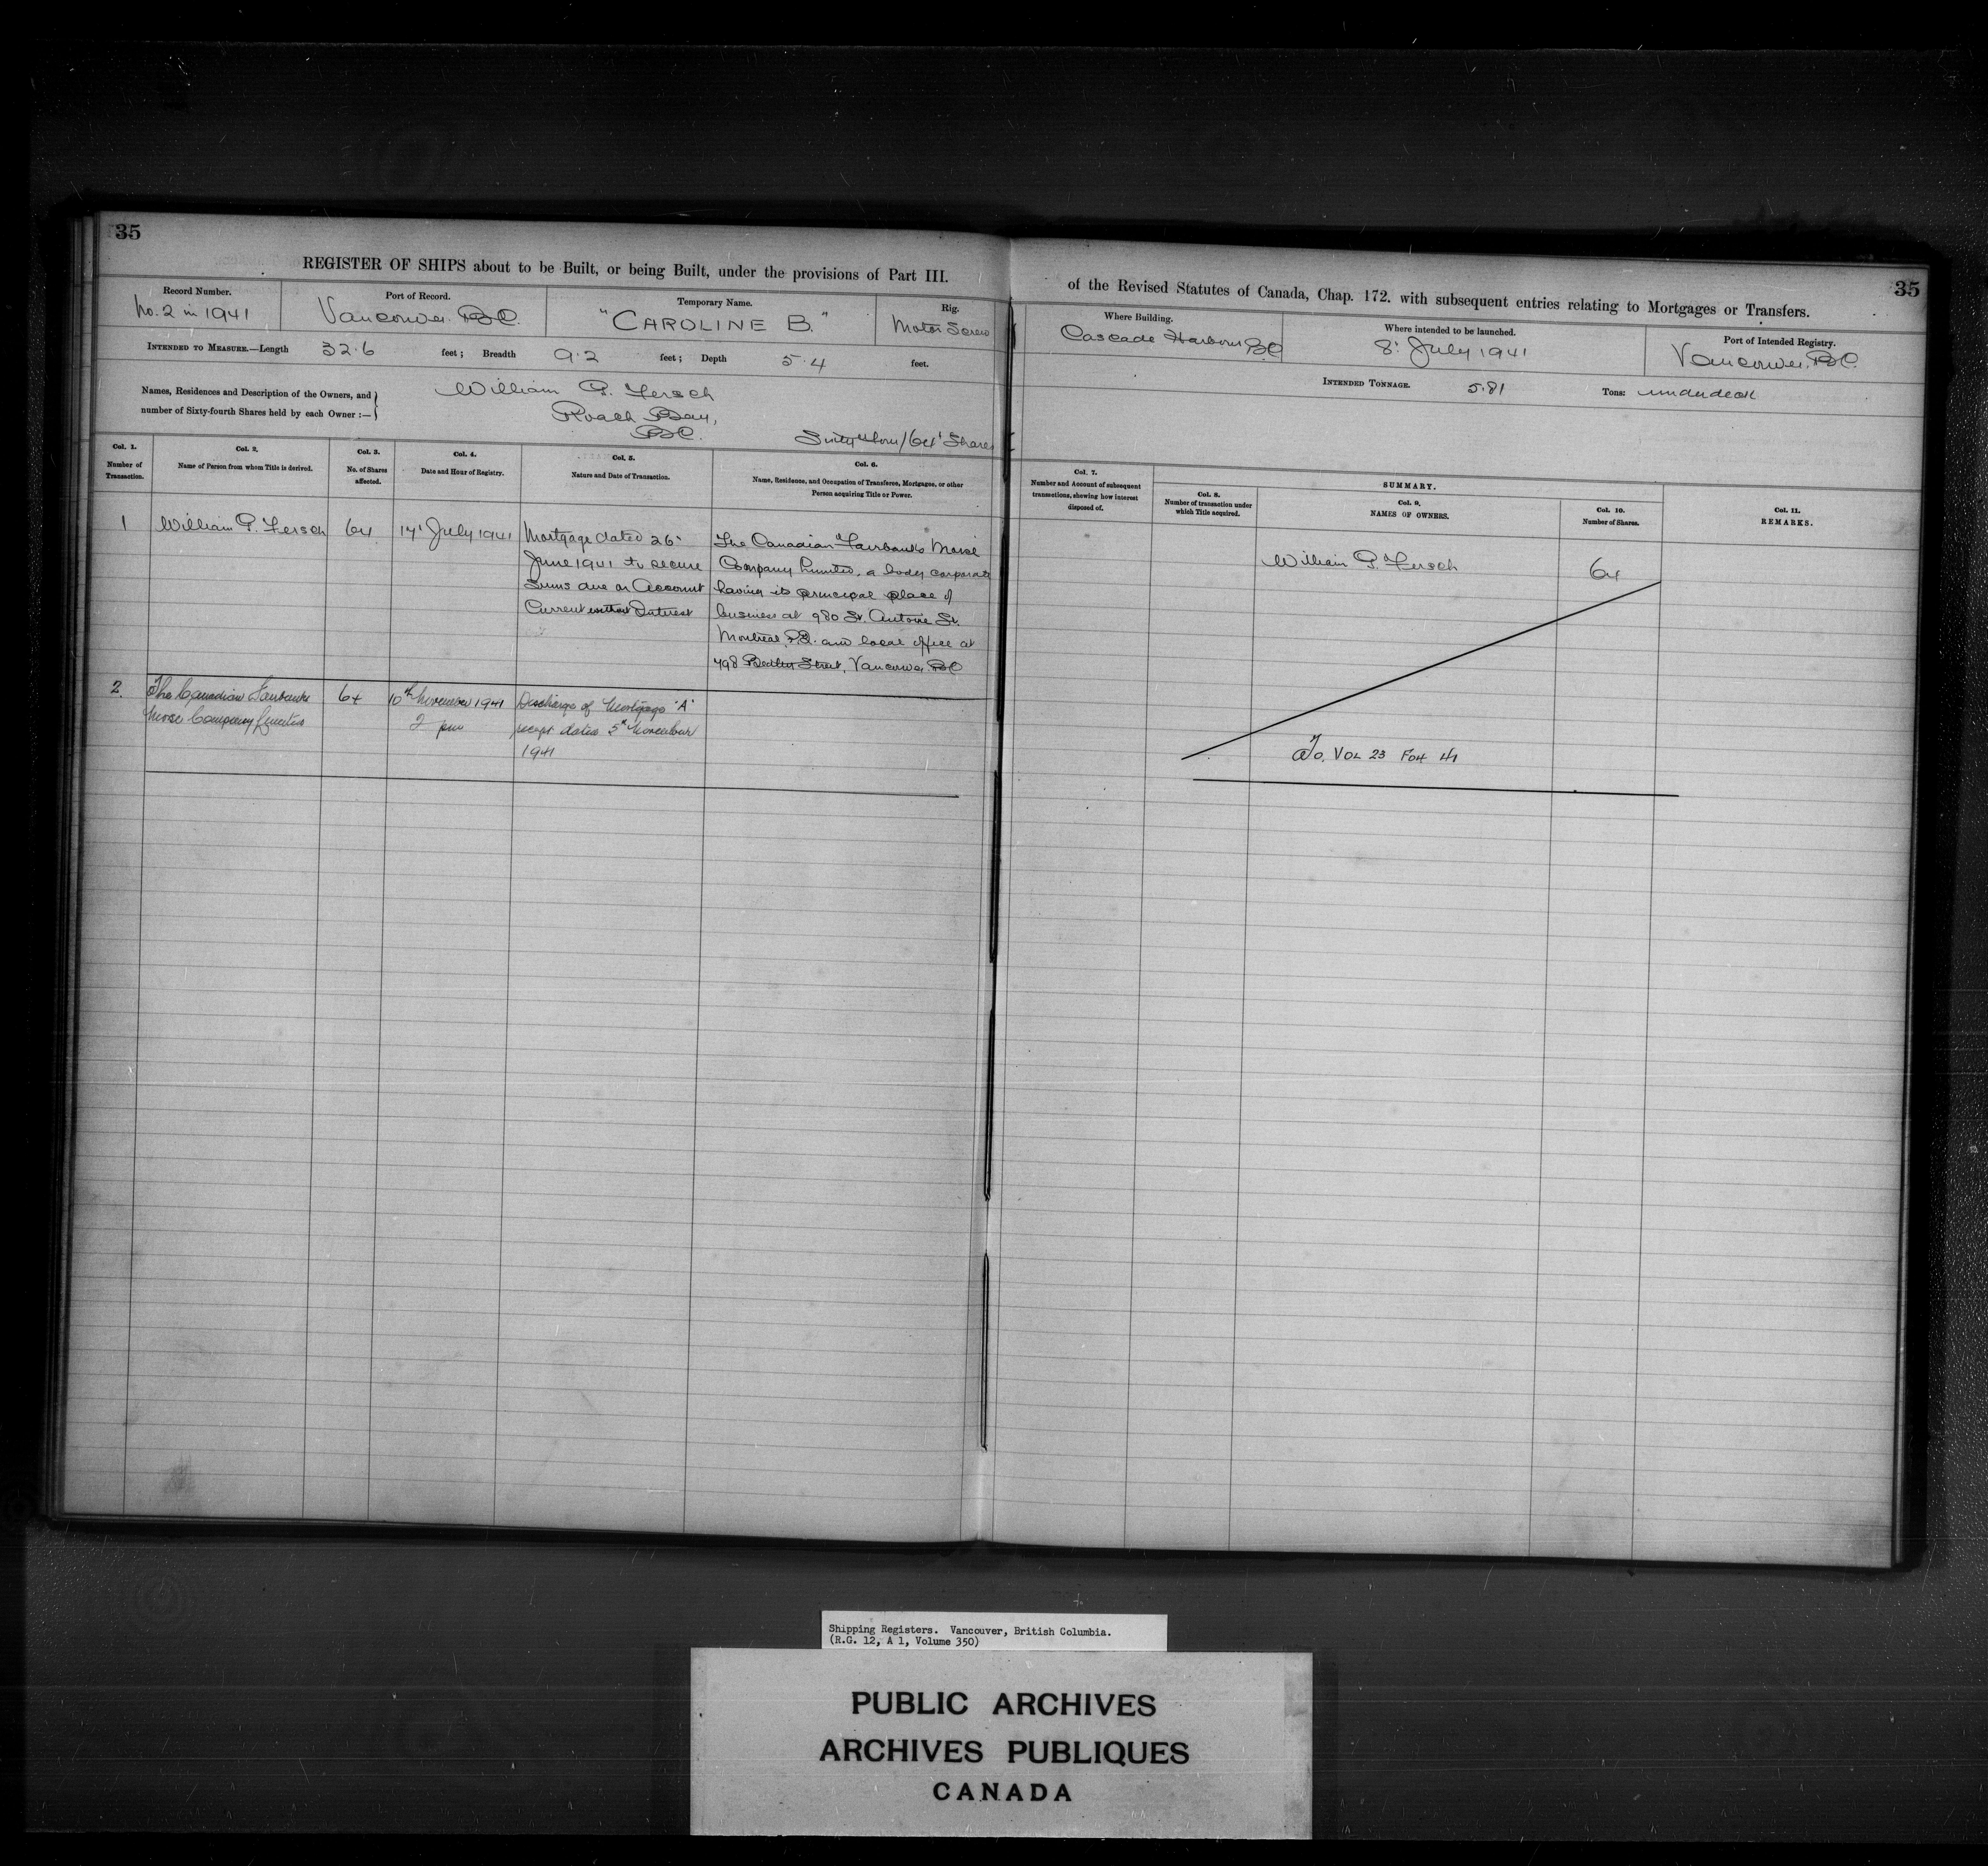 35
REGISTER OF SHIPS about to be Built, or being Built, under the provisions of Part III.
Record Number.
No. 2 in 1941
Port of Record.
Vancouver B.C.
Temporary Name.
"CAROLINE B."
Rig.
Motor Screw
INTENDED TO MEASURE.—Length 32.6 feet; Breadth 9.2 feet; Depth 5.4 feet.
Names, Residences and Description of the Owners, and
number of Sixty-fourth Shares held by each Owner :—
William G. Fersch
Roach Bay,
B.C.
Sixty four /64' Shares
Col. 1.
Number of
Transaction.
Col. 2.
Name of Person from whom Title is derived.
Col. 3.
No. of Shares
affected.
Col. 4.
Date and Hour of Registry.
Col. 5.
Nature and Date of Transaction.
Col. 6.
Name, Residence, and Occupation of Transferee, Mortgagee, or other
Person acquiring Title or Power.
1
William G. Fersch
64
17' July 1941
Mortgage dated 26'
June 1941 to secure
Sums due on Account
Current without Interest
The Canadian Fairbanks Morse
Company Limited, a body corporate
having its principal place of
business at 980 St. Antoine St.
Montreal P.Q. and local office at
798 Street, Vancouver BC
2.
The Canadian Fairbanks
Morse Company Limited
64
10th November 1941
2 pm
Discharge of Mortgage 'A'
receipt dated 5th November
1941
of the Revised Statutes of Canada, Chap. 172. with subsequent entries relating to Mortgages or Transfers.
35
Where Building.
Cascade Harbour B.C
Where intended to be launched.
8' July 1941
Port of Intended Registry.
Vancouver, B.C.
INTENDED TONNAGE. 5.81 Tons: underdeck
Col. 7.
Number and Account of subsequent
transactions, shewing how interest
disposed of.
SUMMARY.
Col. 8.
Number of transaction under
which Title acquired.
Col. 9.
NAMES OF OWNERS.
Col. 10.
Number of Shares.
Col. 11.
REMARKS.
William G. Fersch
64
To. VOL 23 FOL 41
Shipping Registers. Vancouver, British Columbia.
(R.G. 12, A 1, Volume 350)
PUBLIC ARCHIVES
ARCHIVES PUBLIQUES
CANADA